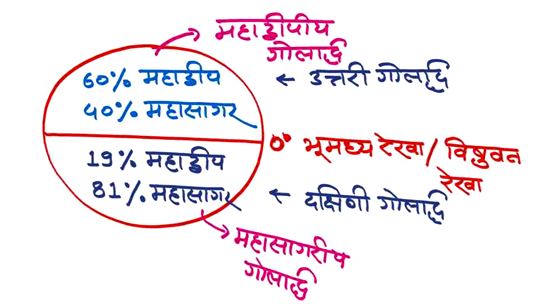 महाद्वीपीय
गोलार्द्ध
60% महाद्वीप
← उत्तरी गोलार्द्ध
40% महासागर
0° भूमध्य रेखा / विषुवत
रेखा
19% महाद्वीप
81% महासागर
← दक्षिणी गोलार्द्ध
महासागरीय
गोलार्द्ध